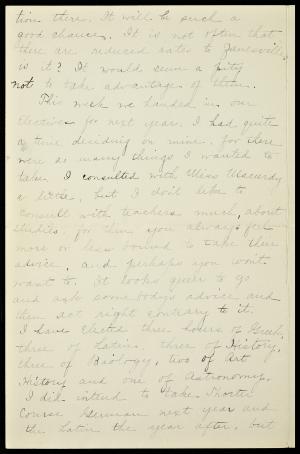 tion there. It will be such a
good chance. It is not often that
there are reduced rates to Zanesville,
is it? It would seem a pity
not to take advantage of them.
This week we handed in our
electives for next year. I had quite
a time deciding on mine, for there
were so many things I wanted to
take. I consulted with Miss Macurdy
a little, but I don't like to
consult with teachers much, about
studies, for then you always feel
more or less bound to take their
advice, and perhaps you won't
want to. It looks queer to go
and ask somebody's advice and
then act right contrary to it.
I have elected three hours of Greek,
three of Latin, three of History,
three of Biology, two of Art
History and one of Astronomy.
I did intend to take Shorter
Course German next year and
the Latin the year after, but